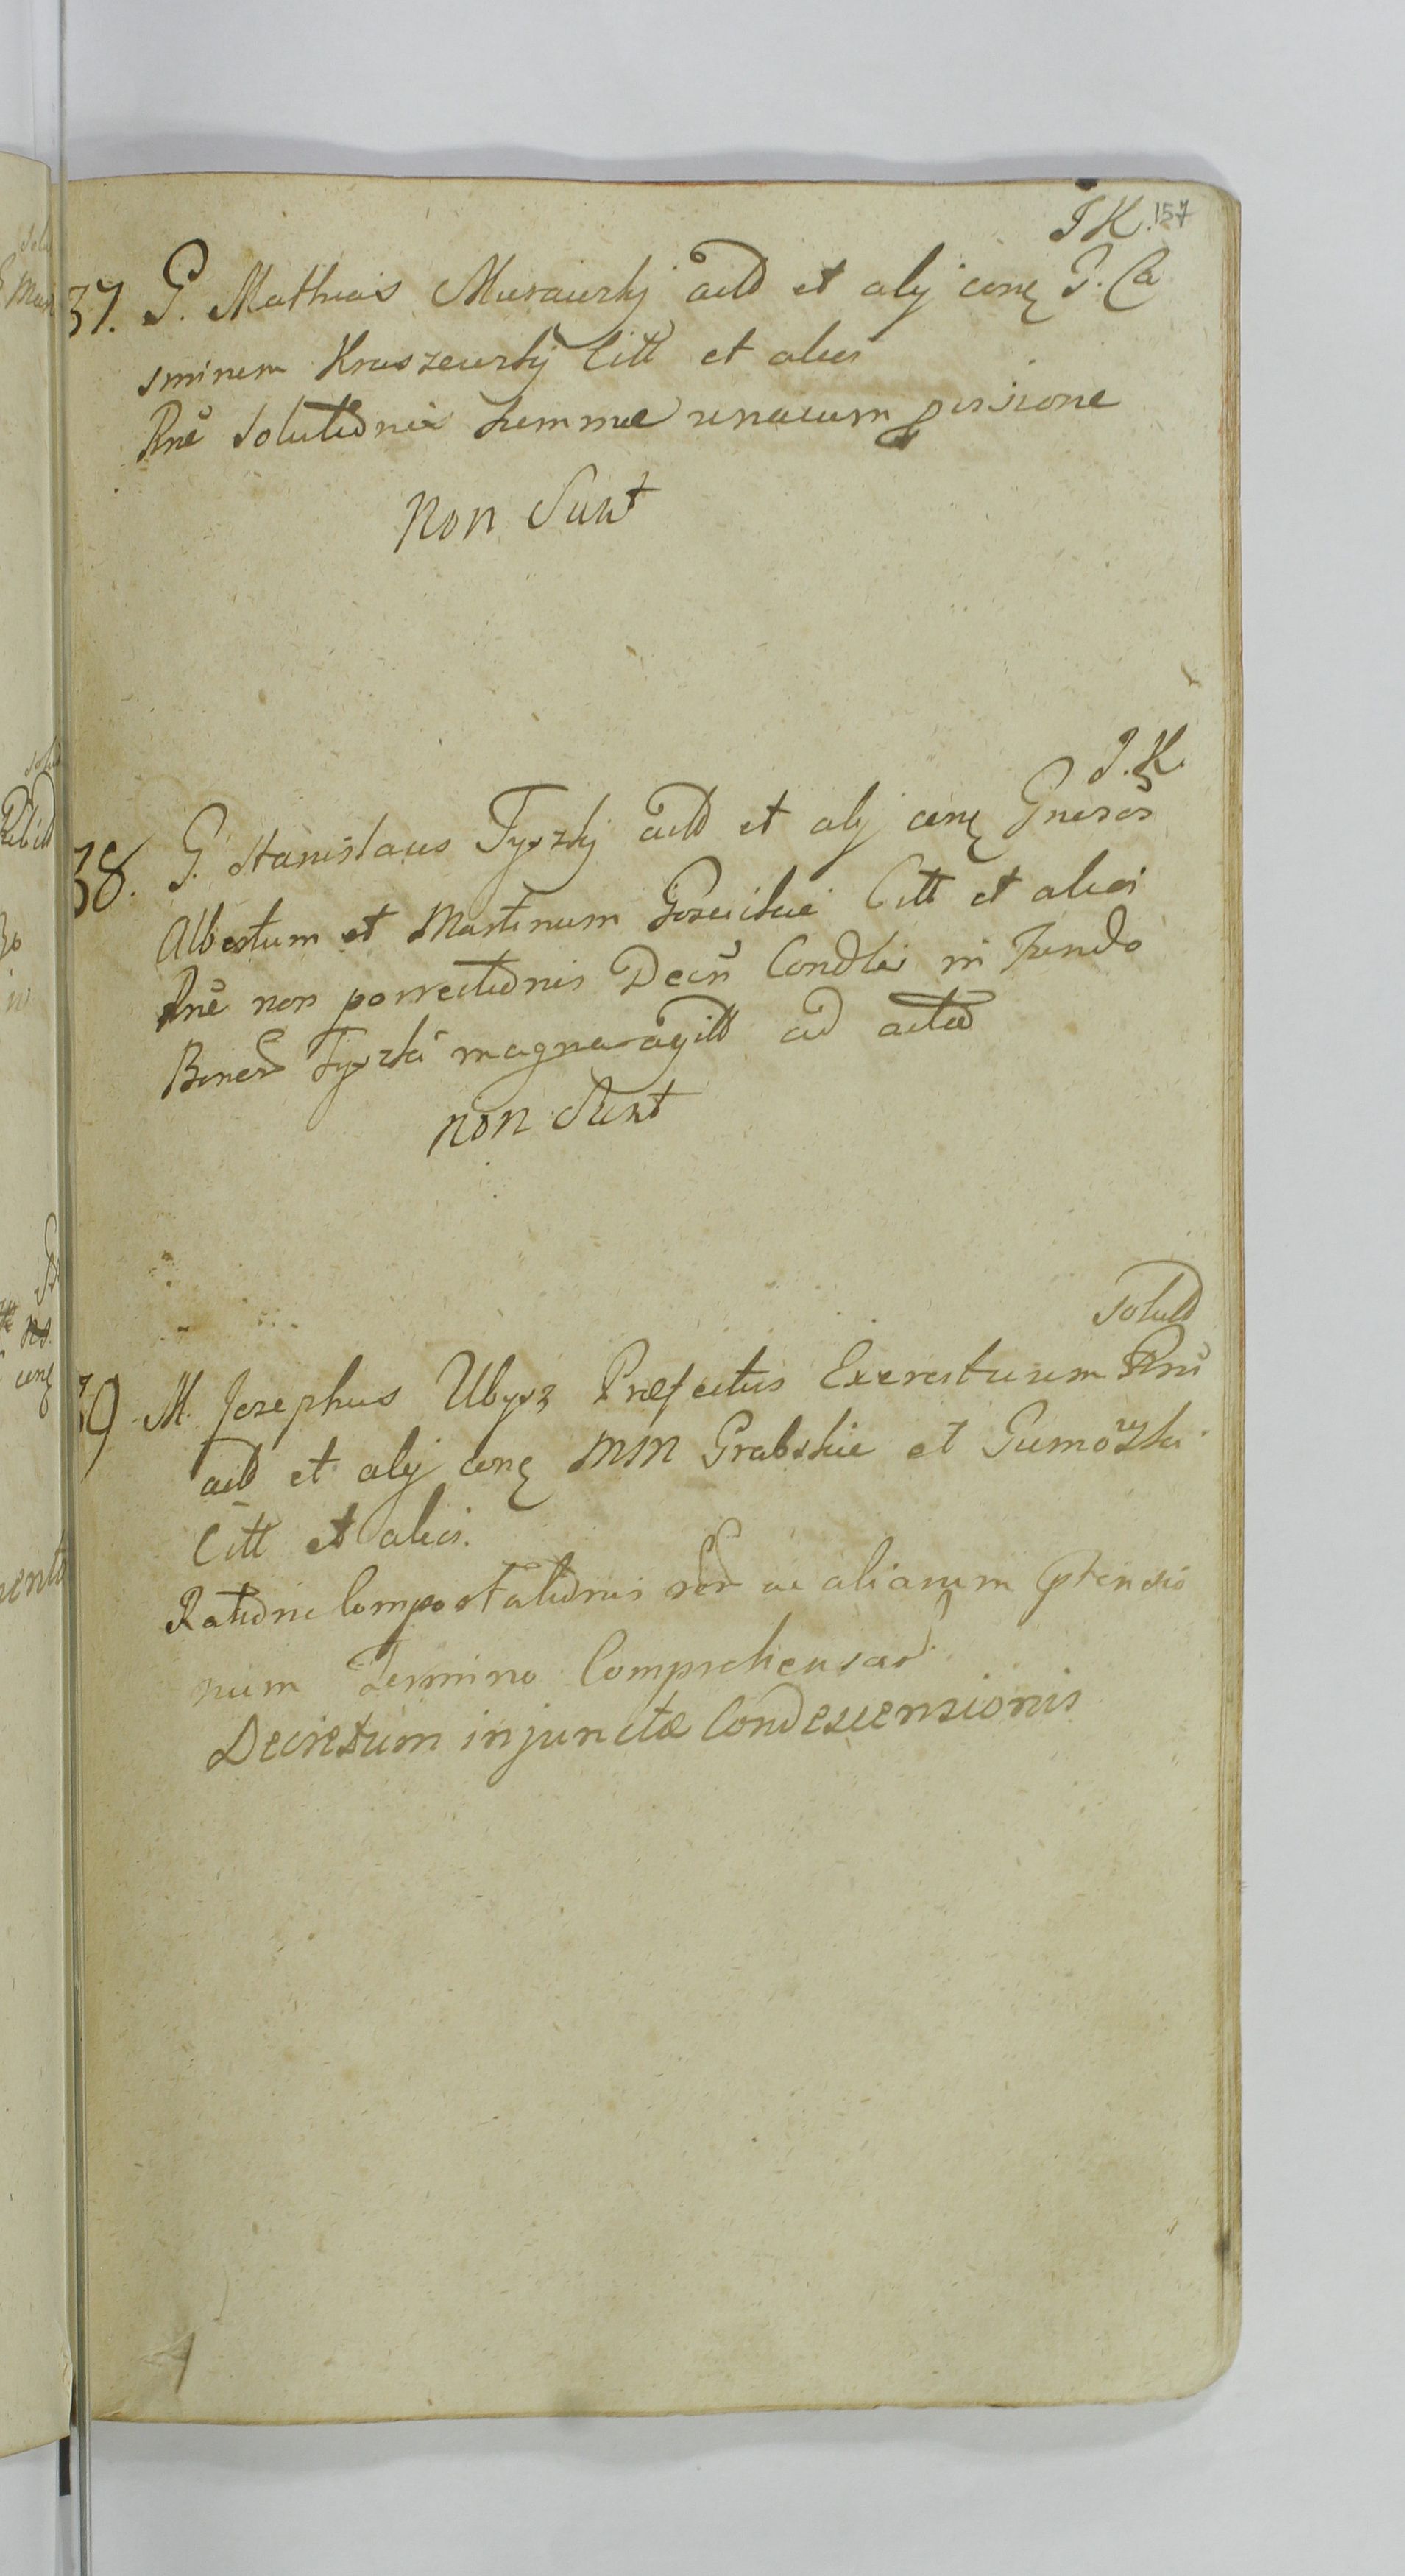 J K. 157
37. G. Mathias MuraWskj actd et alij conz G. Ca
smirum Kraszewskj Citt et alias
Rne solutionis summae unacum provisione
Non Sunt
J. K.
38. G. Stanislaus Tyszkj actd et alij conz Gnesos
Albertum et Martinum Citt et alias
Rne non porrectionis Decri Condtis in fundo
Bonor Tyszki magna agitt ad acta
non Sunt
Solutd
39. M. Josephus Ubysz Praefectus Exercituum Rni
actd et alij conz MM Grabskie et Gumowski
Citt et alias.
Rationе Compostationis ac aliarum ptensio
num Termino Comprehensar
Decretum injunctae Condescensionis